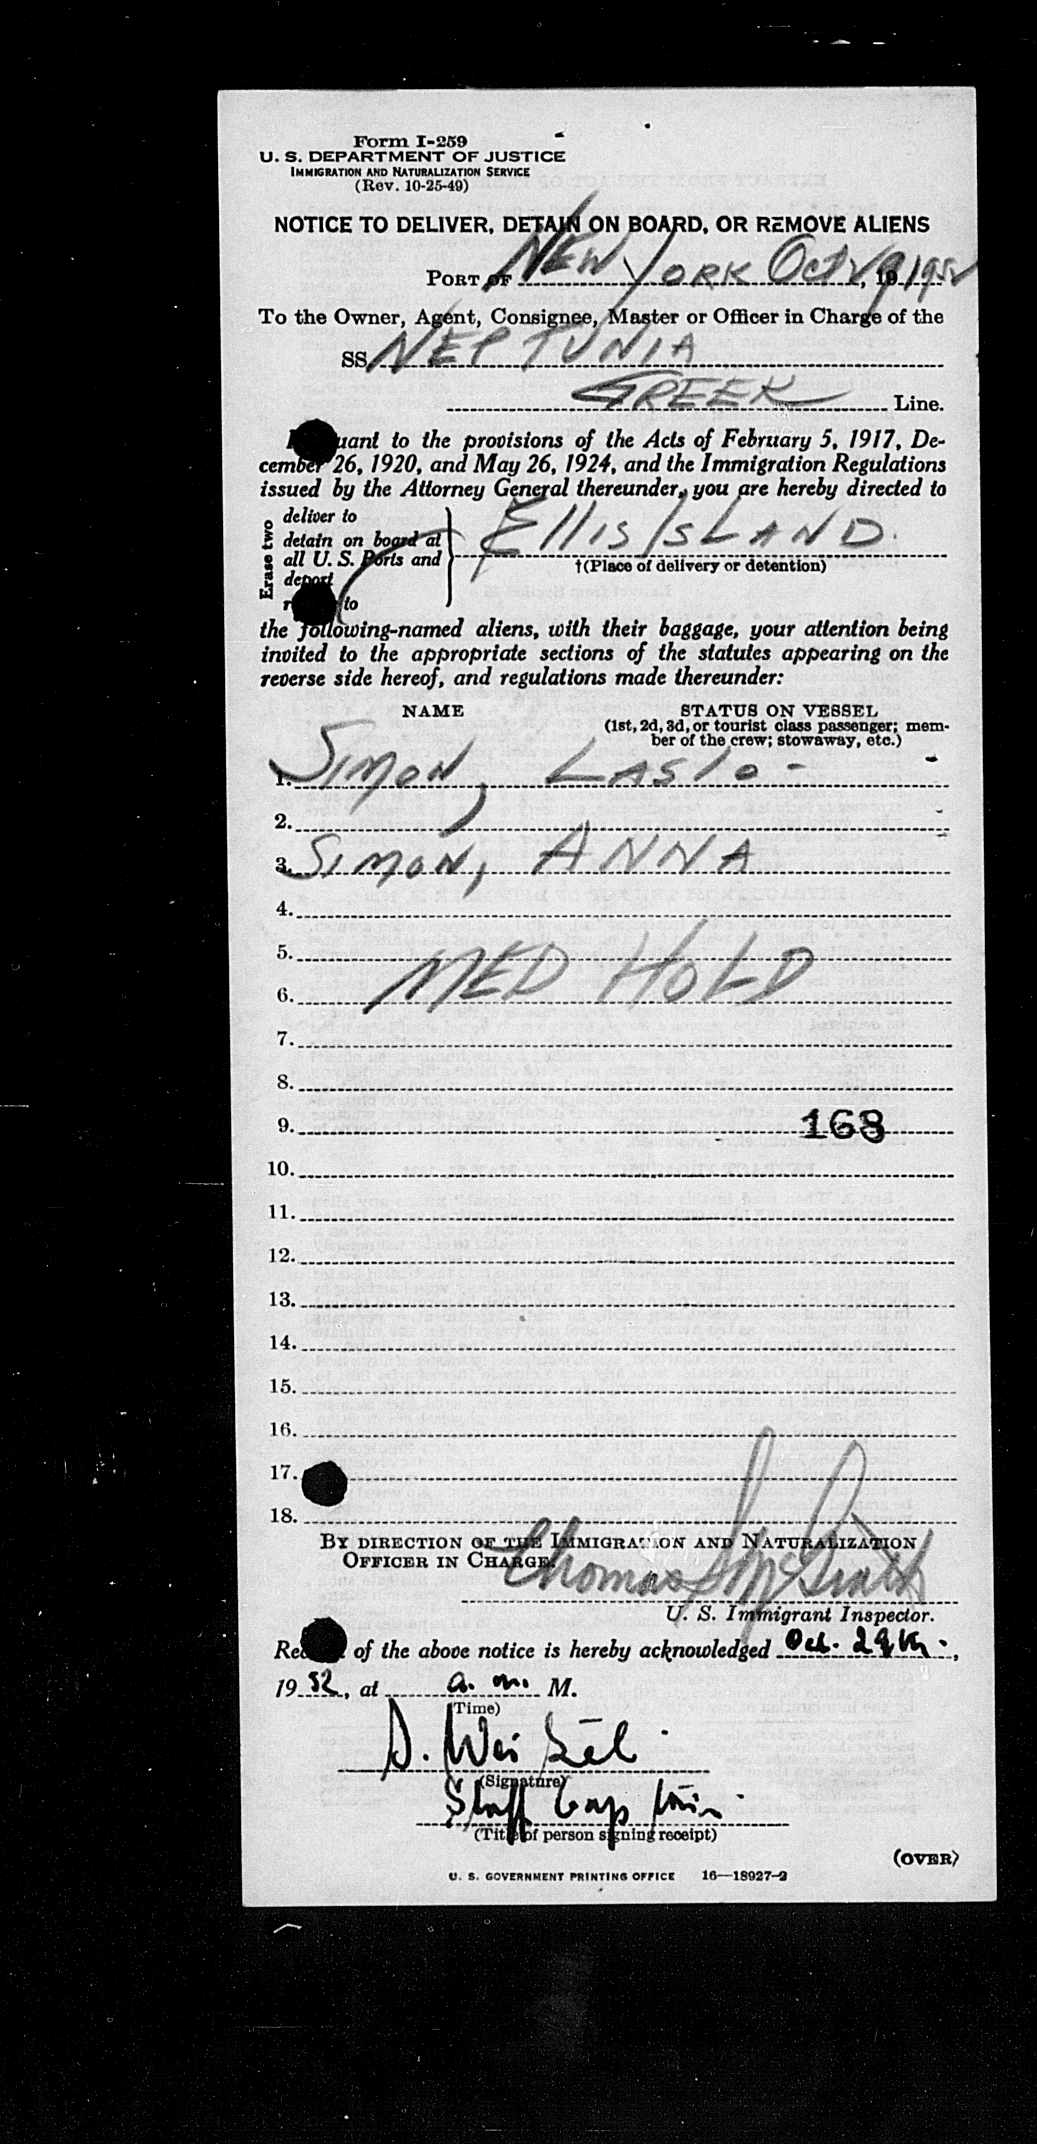 Form I-259
U. S. DEPARTMENT OF JUSTICE
IMMIGRATION AND NATURALIZATION SERVICE
(Rev. 10-25-49)
NOTICE TO DELIVER, DETAIN ON BOARD, OR REMOVE ALIENS
PORT OF NEW YORK Oct 29 1952, 19
To the Owner, Agent, Consignee, Master or Officer in Charge of the
SS NEPTUNIA
GREEK Line.
uant to the provisions of the Acts of February 5, 1917, De-
cember 26, 1920, and May 26, 1924, and the Immigration Regulations
issued by the Attorney General thereunder, you are hereby directed to
Erase two
deliver to
detain on board at
all U. S. Ports and
deport
to
EllIS ISLAND.
†(Place of delivery or detention)
the following-named aliens, with their baggage, your attention being
invited to the appropriate sections of the statutes appearing on the
reverse side hereof, and regulations made thereunder:
NAME STATUS ON VESSEL
(1st, 2d, 3d, or tourist class passenger; mem-
ber of the crew; stowaway, etc.)
1. SIMON, LASLO -
2.
3. SIMON, ANNA
4.
5.
6. MED HOLD
7.
8.
9. 168
10.
11.
12.
13.
14.
15.
16.
17.
18.
BY DIRECTION OF THE IMMIGRATION AND NATURALIZATION
OFFICER IN CHARGE.
Thomas J McGrath
U. S. Immigrant Inspector.
Rec of the above notice is hereby acknowledged Oct. 29th.,
19 52, at a. m. M.
(Time)
D.
(Signature)
Staff Captain.
(Title of person signing receipt)
(OVER)
U. S. GOVERNMENT PRINTING OFFICE 16—18927-2